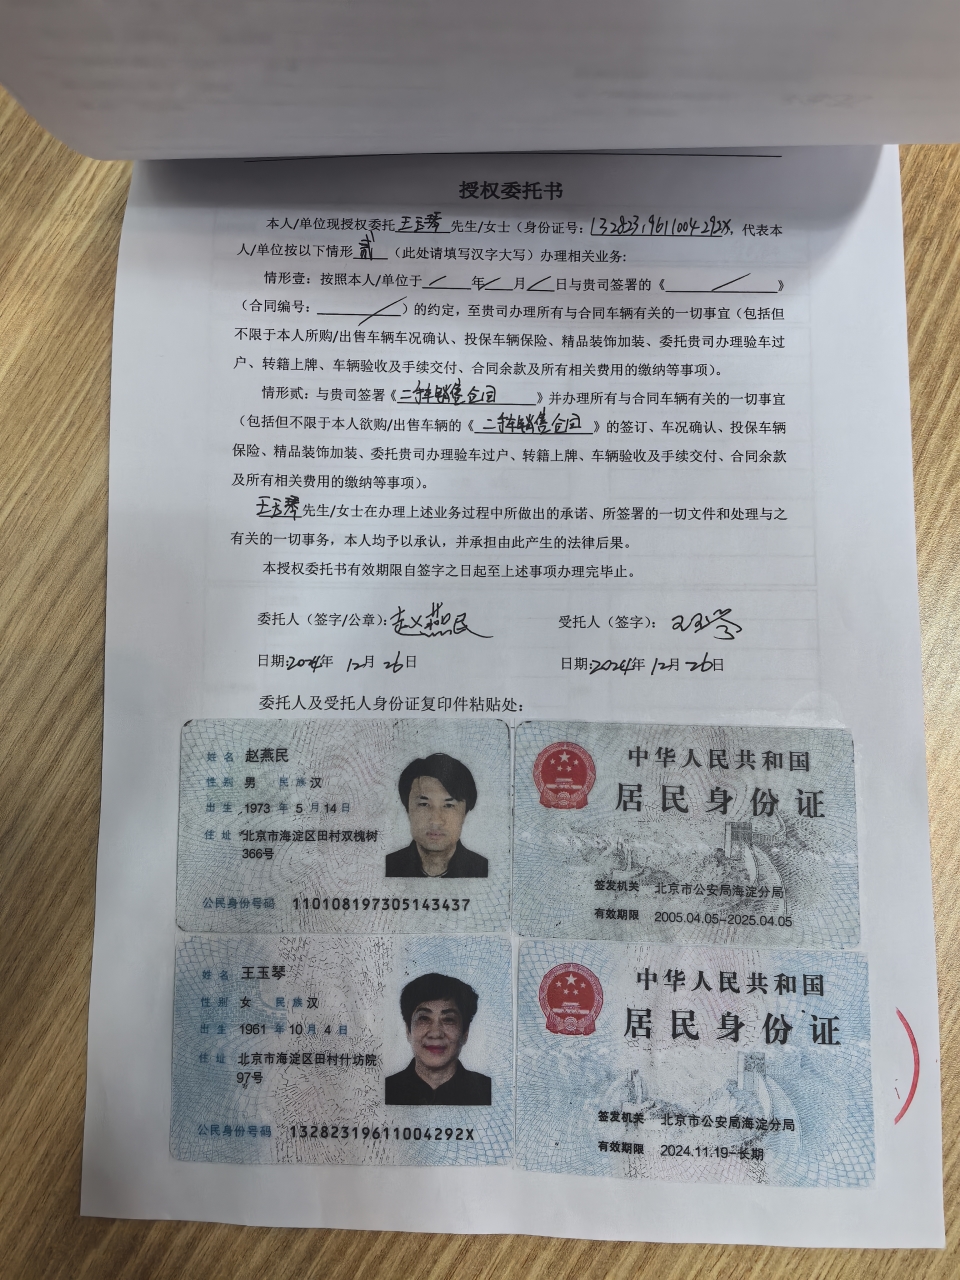 授权委托书
本人/单位现授权委托王玉琴先生/女士（身份证号：13282319611004292X，代表本
人/单位按以下情形贰（此处请填写汉字大写）办理相关业务:
情形壹：按照本人/单位于 年 月 日与贵司签署的《 》
（合同编号： ）的约定，至贵司办理所有与合同车辆有关的一切事宜（包括但
不限于本人所购/出售车辆车况确认、投保车辆保险、精品装饰加装、委托贵司办理验车过
户、转籍上牌、车辆验收及手续交付、合同余款及所有相关费用的缴纳等事项）。
情形贰：与贵司签署《二手车销售合同》并办理所有与合同车辆有关的一切事宜
（包括但不限于本人欲购/出售车辆的《二手车销售合同》的签订、车况确认、投保车辆
保险、精品装饰加装、委托贵司办理验车过户、转籍上牌、车辆验收及手续交付、合同余款
及所有相关费用的缴纳等事项）。
王玉琴先生/女士在办理上述业务过程中所做出的承诺、所签署的一切文件和处理与之
有关的一切事务，本人均予以承认，并承担由此产生的法律后果。
本授权委托书有效期限自签字之日起至上述事项办理完毕止。
委托人（签字/公章）：赵燕民 受托人（签字）：王玉琴
日期:2024年 12月 26日 日期:2024年 12月 26日
委托人及受托人身份证复印件粘贴处：
姓名 赵燕民
性别 男 民族 汉
出生 1973 年 5 月 14 日
住址 北京市海淀区田村双槐树
366号
公民身份号码 110108197305143437
中华人民共和国
居民身份证
签发机关 北京市公安局海淀分局
有效期限 2005.04.05-2025.04.05
姓名 王玉琴
性别 女 民族 汉
出生 1961 年 10 月 4 日
住址 北京市海淀区田村什坊院
97号
公民身份号码 13282319611004292X
中华人民共和国
居民身份证
签发机关 北京市公安局海淀分局
有效期限 2024.11.19-长期